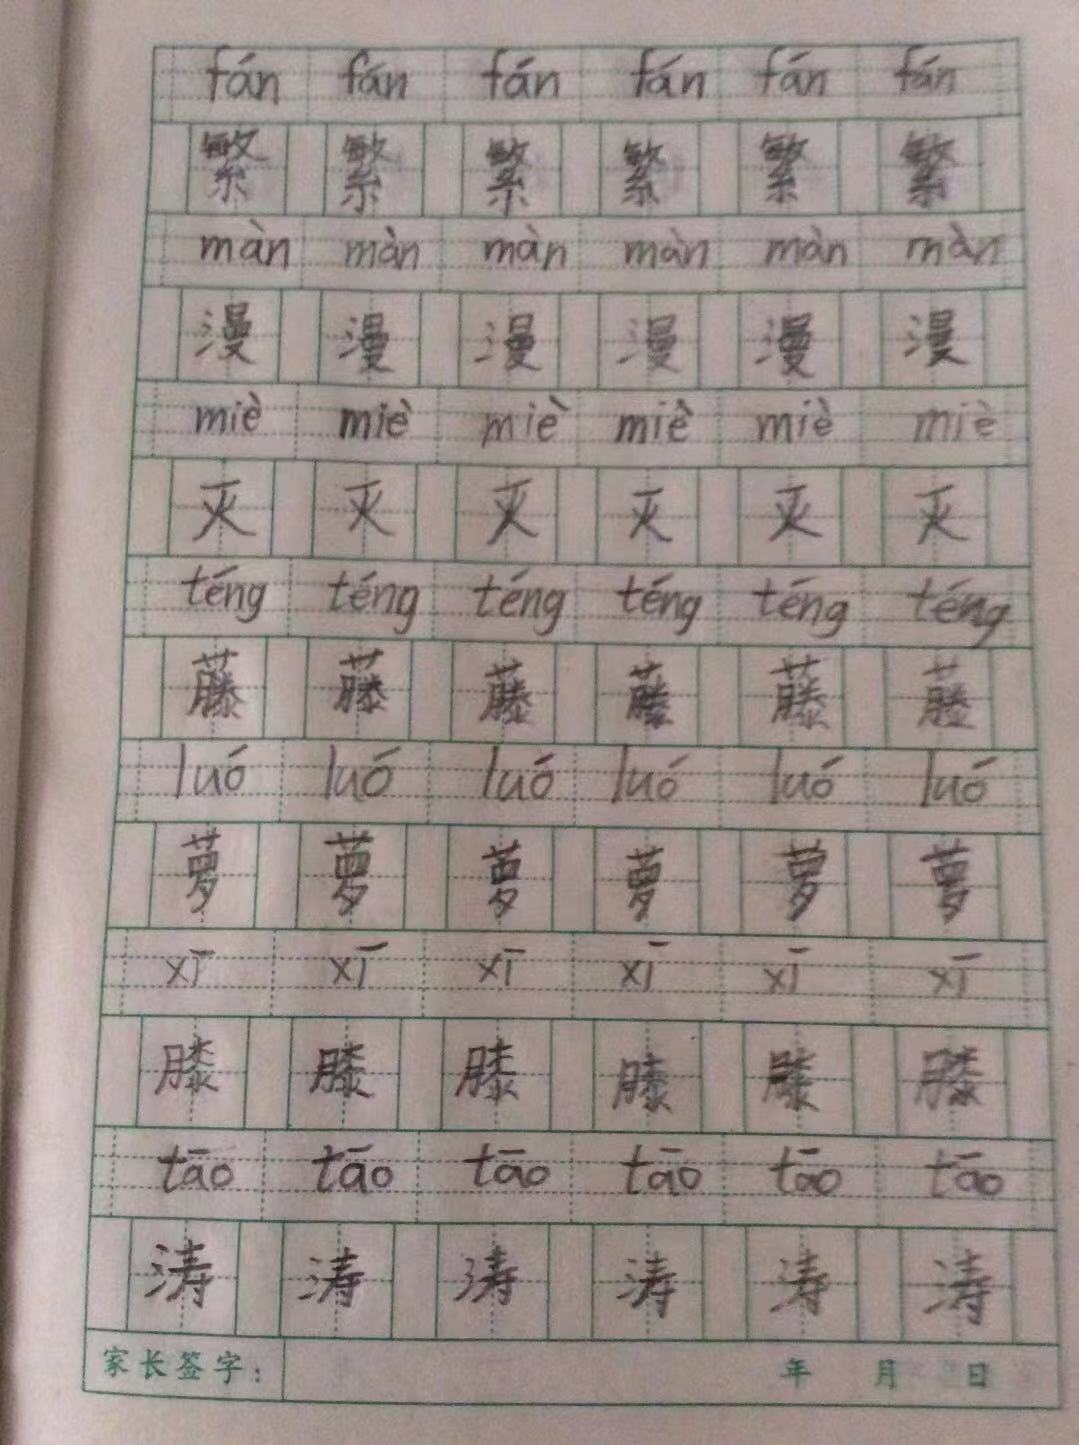 fán fán fán fán fán fán
繁 繁 繁 繁 繁 繁
màn màn màn màn màn màn
漫 漫 漫 漫 漫 漫
miè miè miè miè miè miè
灭 灭 灭 灭 灭 灭
téng téng téng téng téng téng
藤 藤 藤 藤 藤 藤
luó luó luó luó luó luó
萝 萝 萝 萝 萝 萝
xī xī xī xī xī xī
膝 膝 膝 膝 膝 膝
tāo tāo tāo tāo tāo tāo
涛 涛 涛 涛 涛 涛
家长签字： 年 月 日